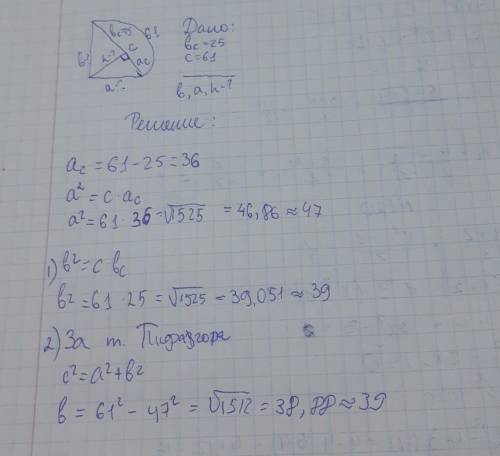 bc=25 61
c
b? h-? ac
a-?
Дано:
bc = 25
c = 61
b, a, h-?
Решение:
ac = 61 - 25 = 36
a² = c · ac
a² = 61 · 36 = √1525 = 46,86 ≈ 47
1) b² = c bc
b² = 61 · 25 = √1525 = 39,051 ≈ 39
2) За т. Пифагора
c² = a² + b²
b = 61² - 47² = √1512 = 38,88 ≈ 39